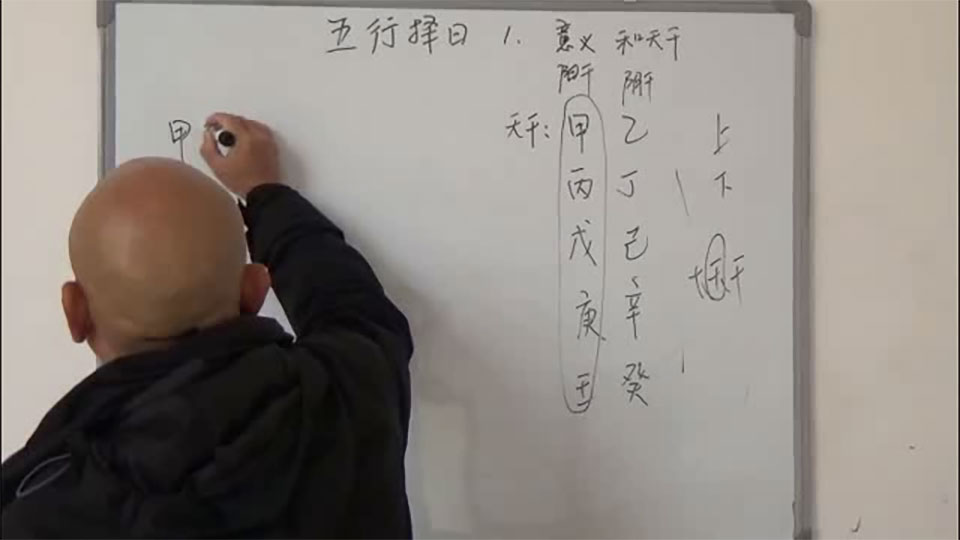 五行择日 1. 意义 和天干
阳干 阴干
天干: 甲 乙 上
丙 丁 下
戊 己
十天干
庚 辛
壬 癸
甲